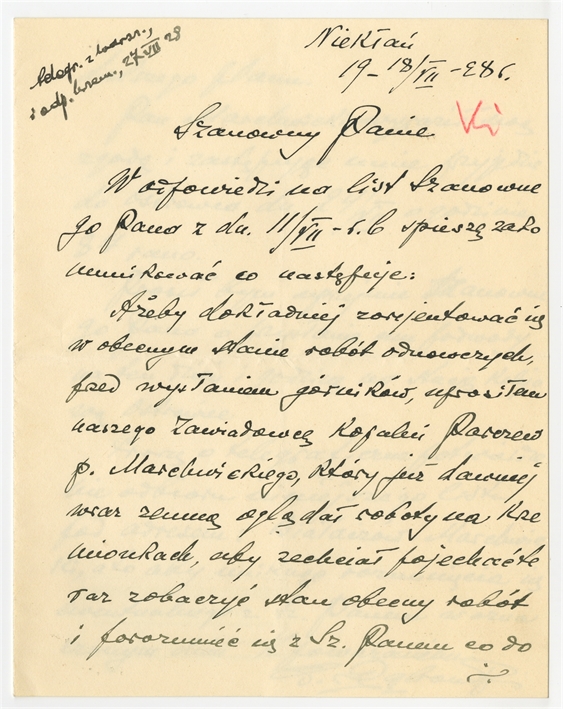 telegr. z Warsz.,
z odp. Krzem., 27 VII 28
Niekłań
19-18/VII-28 r.
Szanowny Panie
W odpowiedzi na list Szanowne
go Pana z dn. 11/VII-r.b spieszę zako
munikować co następuje:
Ażeby dokładniej zorjentować się
w obecnym stanie robót odnowczych,
przed wysłaniem górników, uprosiłem
naszego Zawiadowcę Kopalń Parczew
p. Marchwickiego, który już dawniej
wraz zemną oglądał roboty na Krze
mionkach, aby zechciał pojechać te
raz zobaczyć stan obecny robót
i porozumieć się z Sz. Panem co do